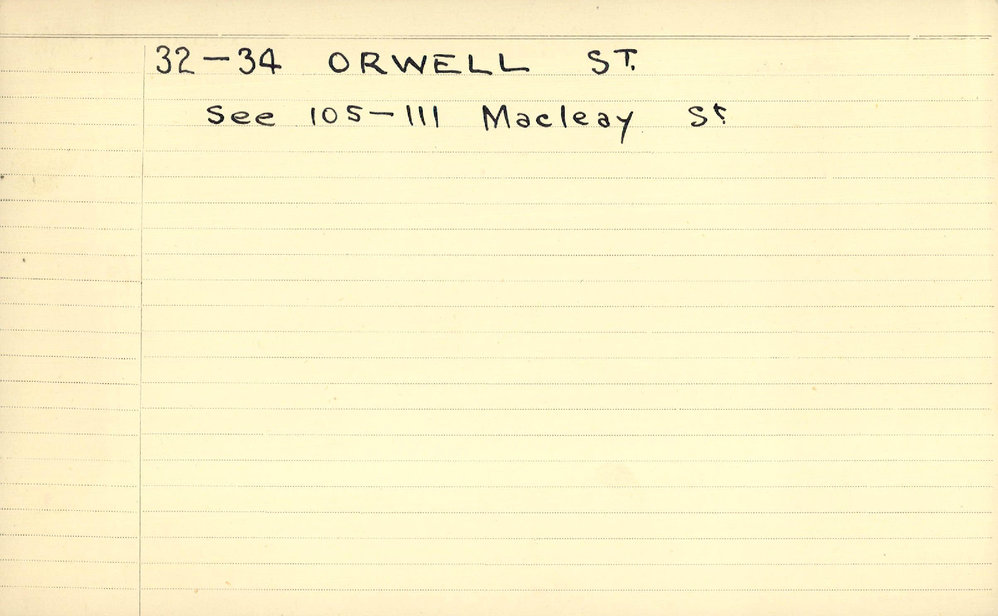 32-34 ORWELL ST.
See 105-111 Macleay St